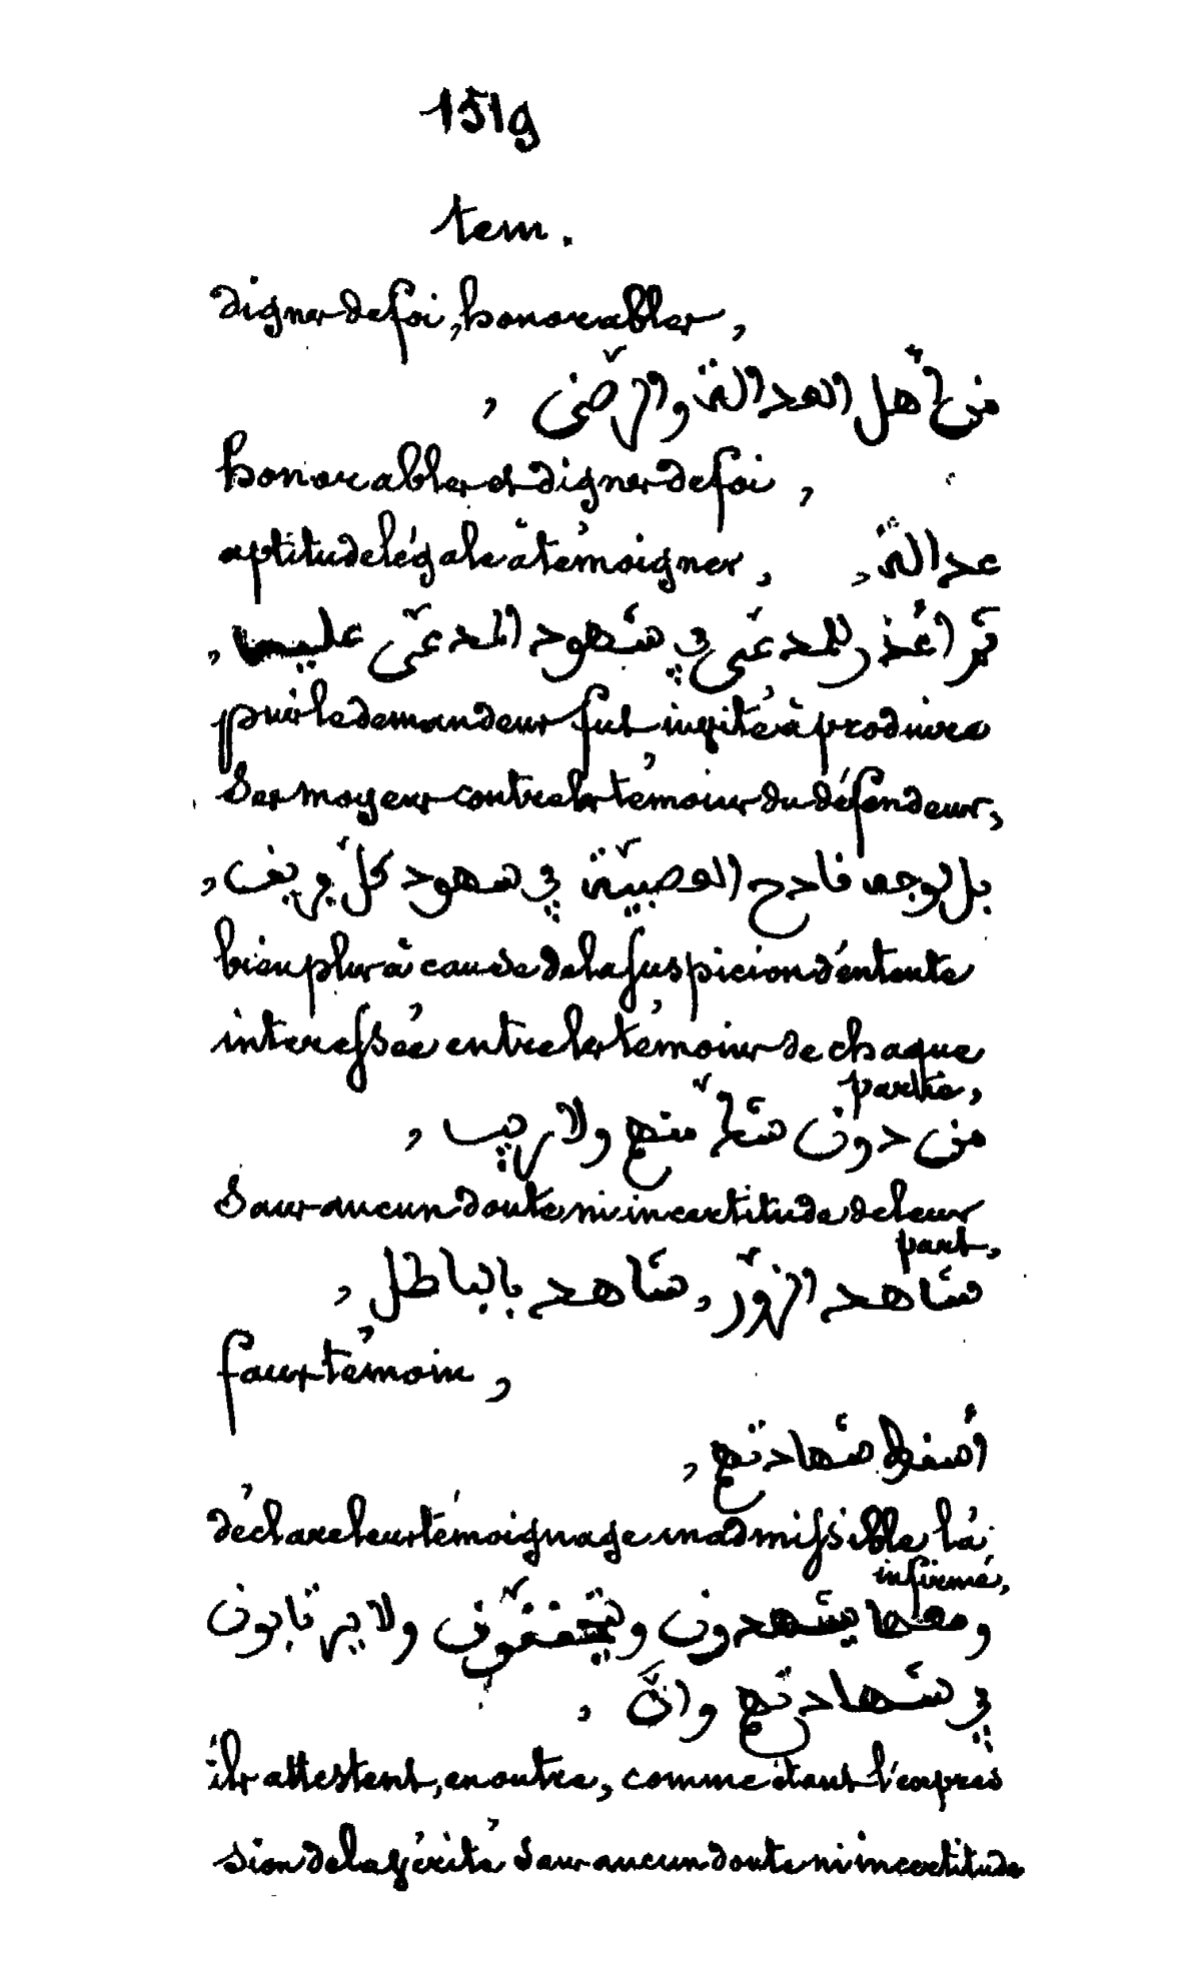 1519
tem.
dignes de foi, honorables,
من أهل العدالة والرّضى ,
honorables et dignes de foi,
aptitude légale à témoigner, عدالة,
ثم أعذر للمدعى في شهود المدعّى عليه,
puis le demandeur fut invité à produire
ses moyens contre les témoins du défendeur,
بل بوجه فادح العصبيّة في شهود كلّ فريق,
bien plus à cause de la suspicion d'entente
interessée entre les témoins de chaque
partie,
من دون شكّ منهم ولا ريب,
sans aucun doute ni incertitude de leur
part,
شاهد الزّور, شاهد بالباطل,
faux témoin,
أسقط شهادتهم,
déclare leur témoignage inadmissible, l'a
infirmé,
يشهدون ويتحققّون ولا يرتابون
في شهادتهم وأنّ,
ils attestent, en outre, comme étant l'expres
sion de la vérité sans aucun doute ni incertitude